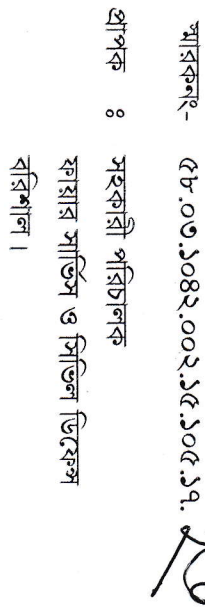 স্মারকনং- ৫৮.০৩.১০৪২.০০২.১৫.১০৫.১৭.
প্রাপক ঃ সহকারী পরিচালক
ফায়ার সার্ভিস ও সিভিল ডিফেন্স
বরিশাল।